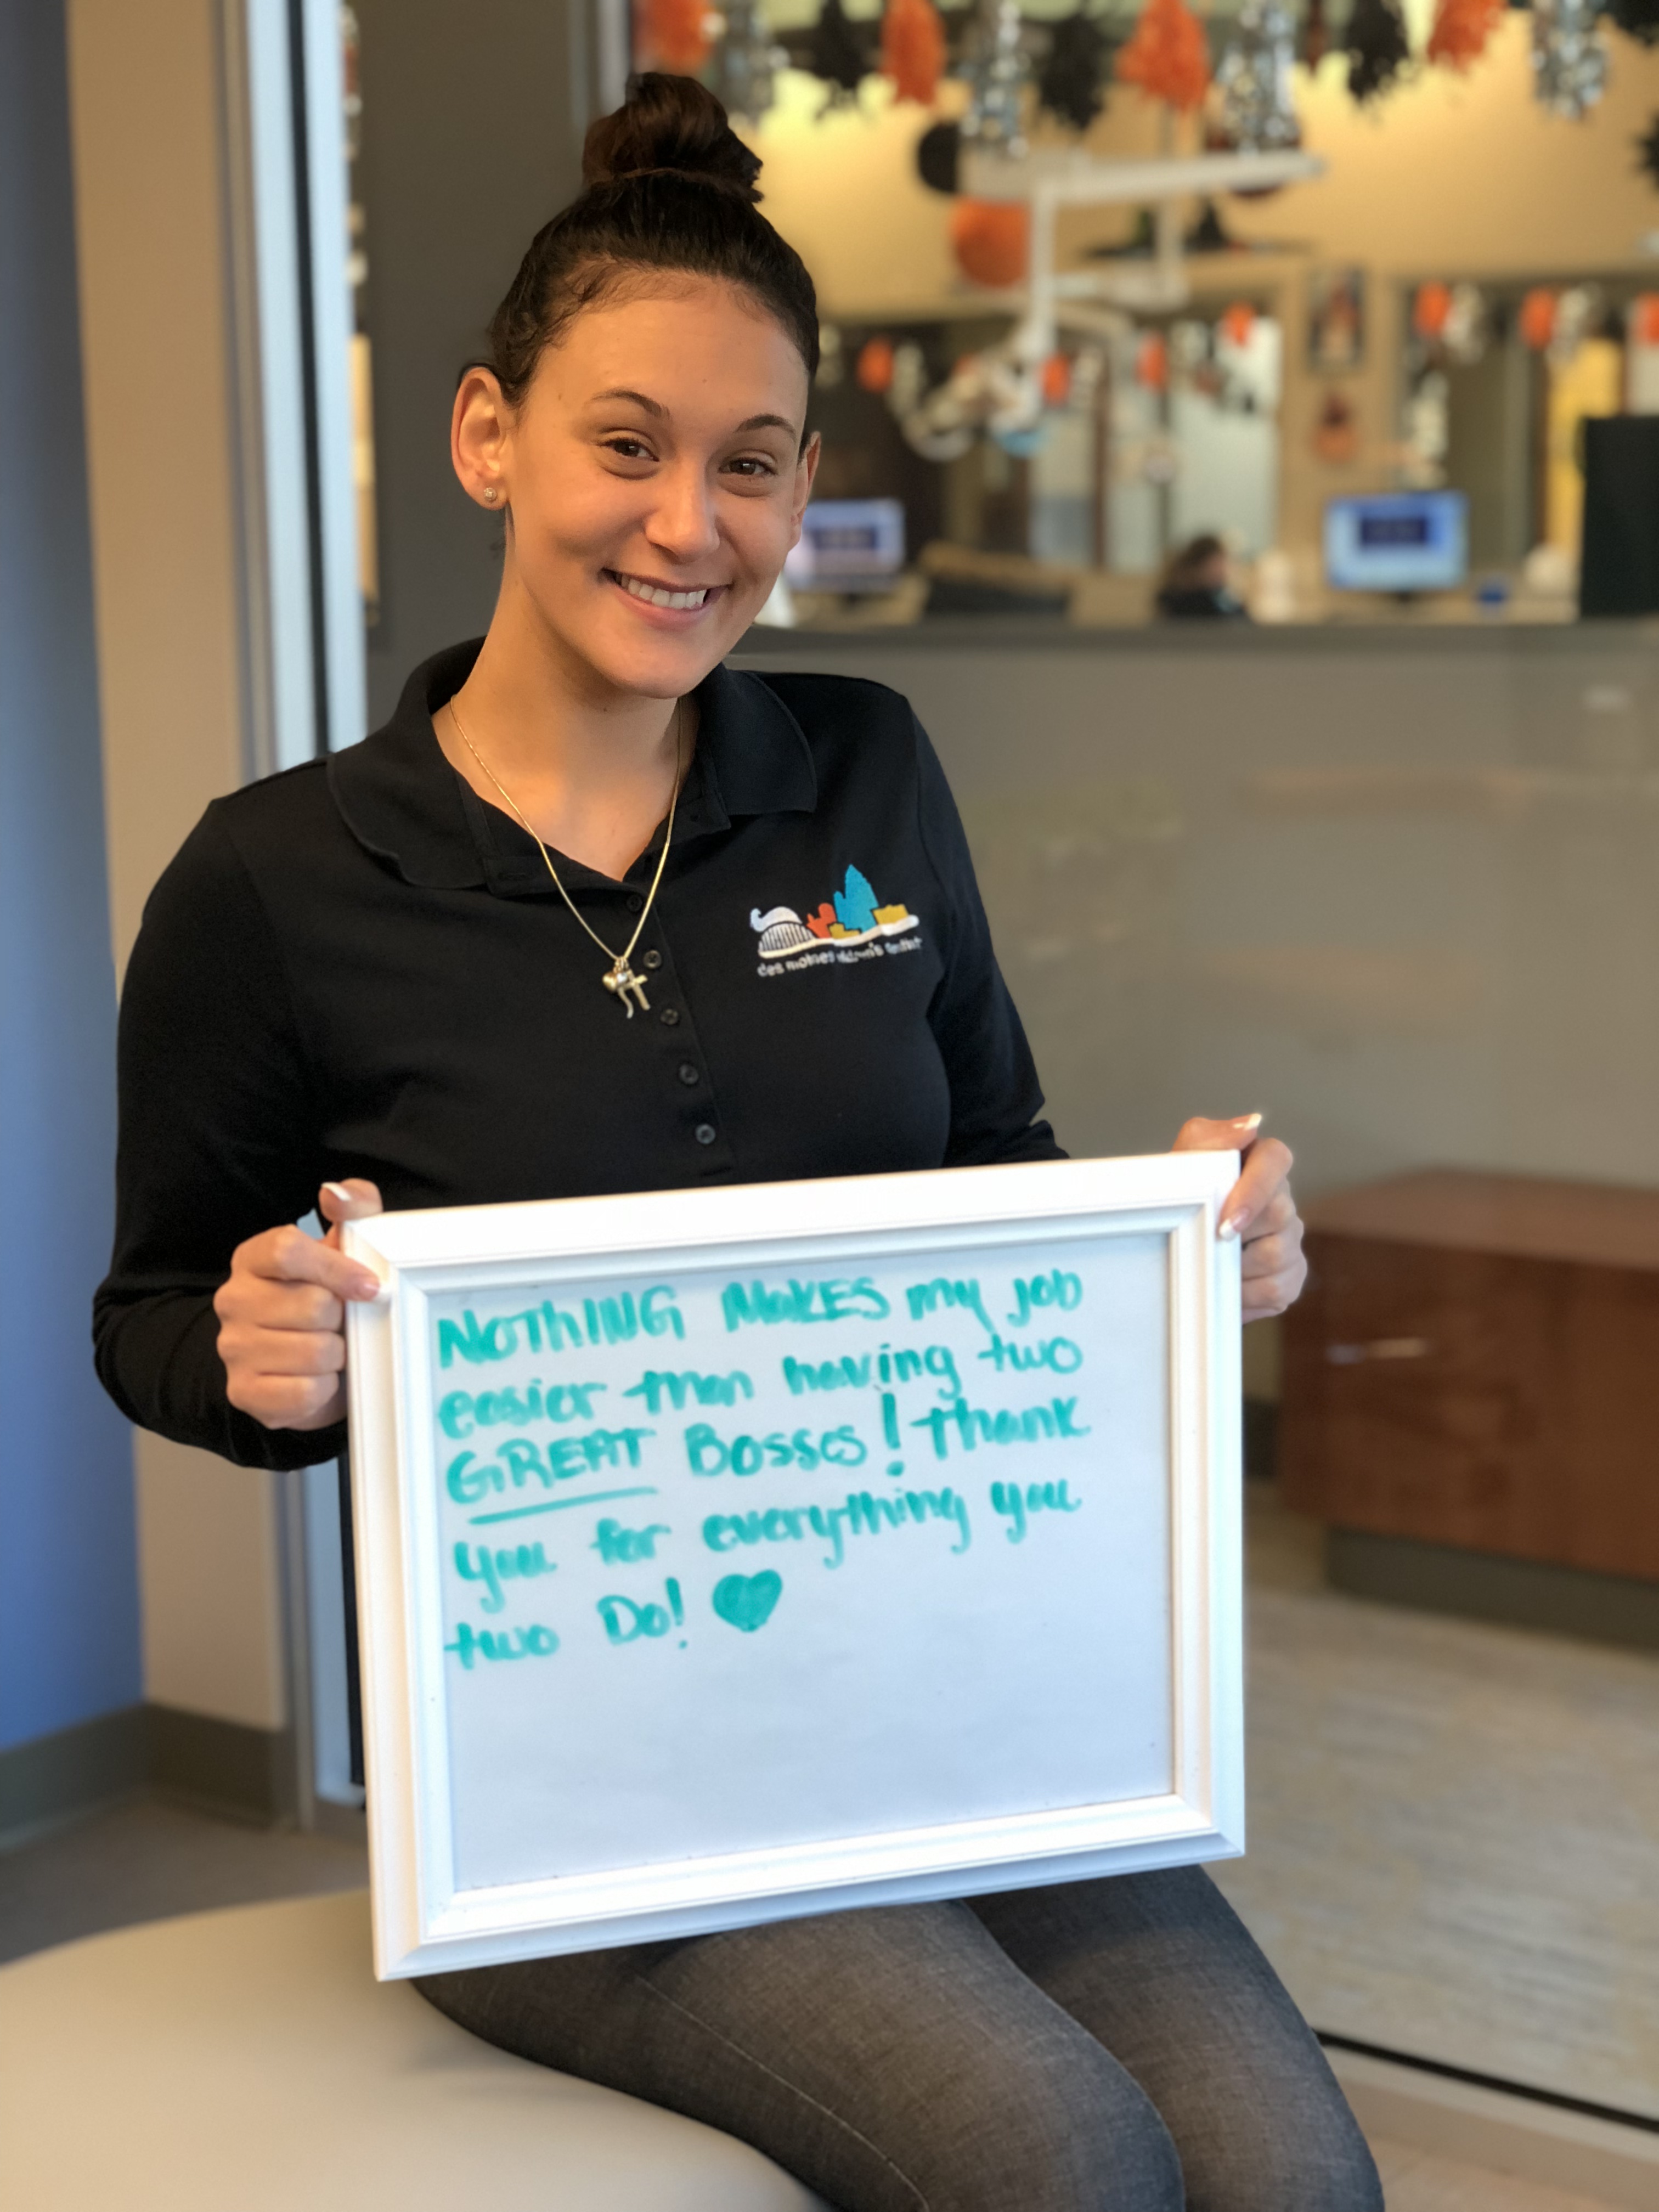 des moines children's dentist
NOTHING MAKES my job
easier than having two
GREAT Bosses! Thank
you for everything you
two Do! ♥